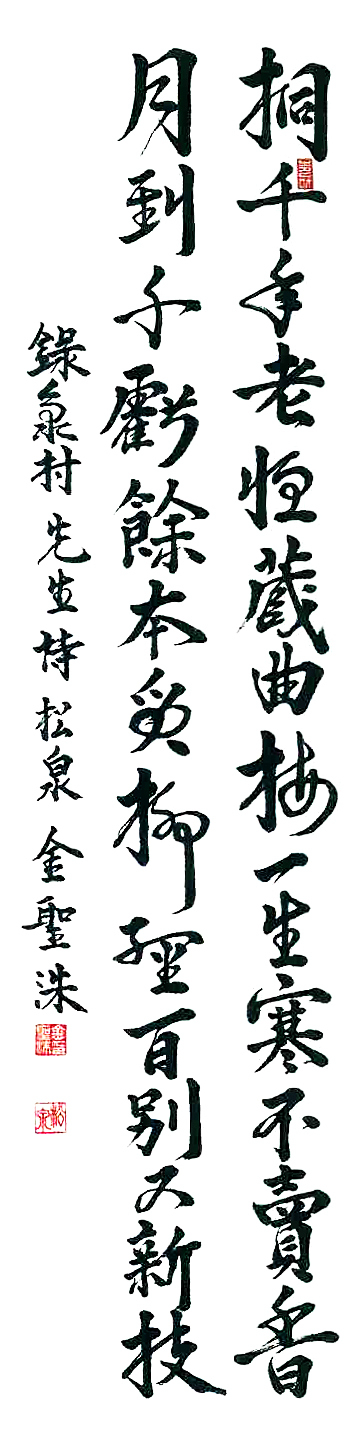 桐千年老恒藏曲梅一生寒不賣香
月到千虧餘本質柳經百別又新枝
錄象村先生詩 松泉 金聖洙